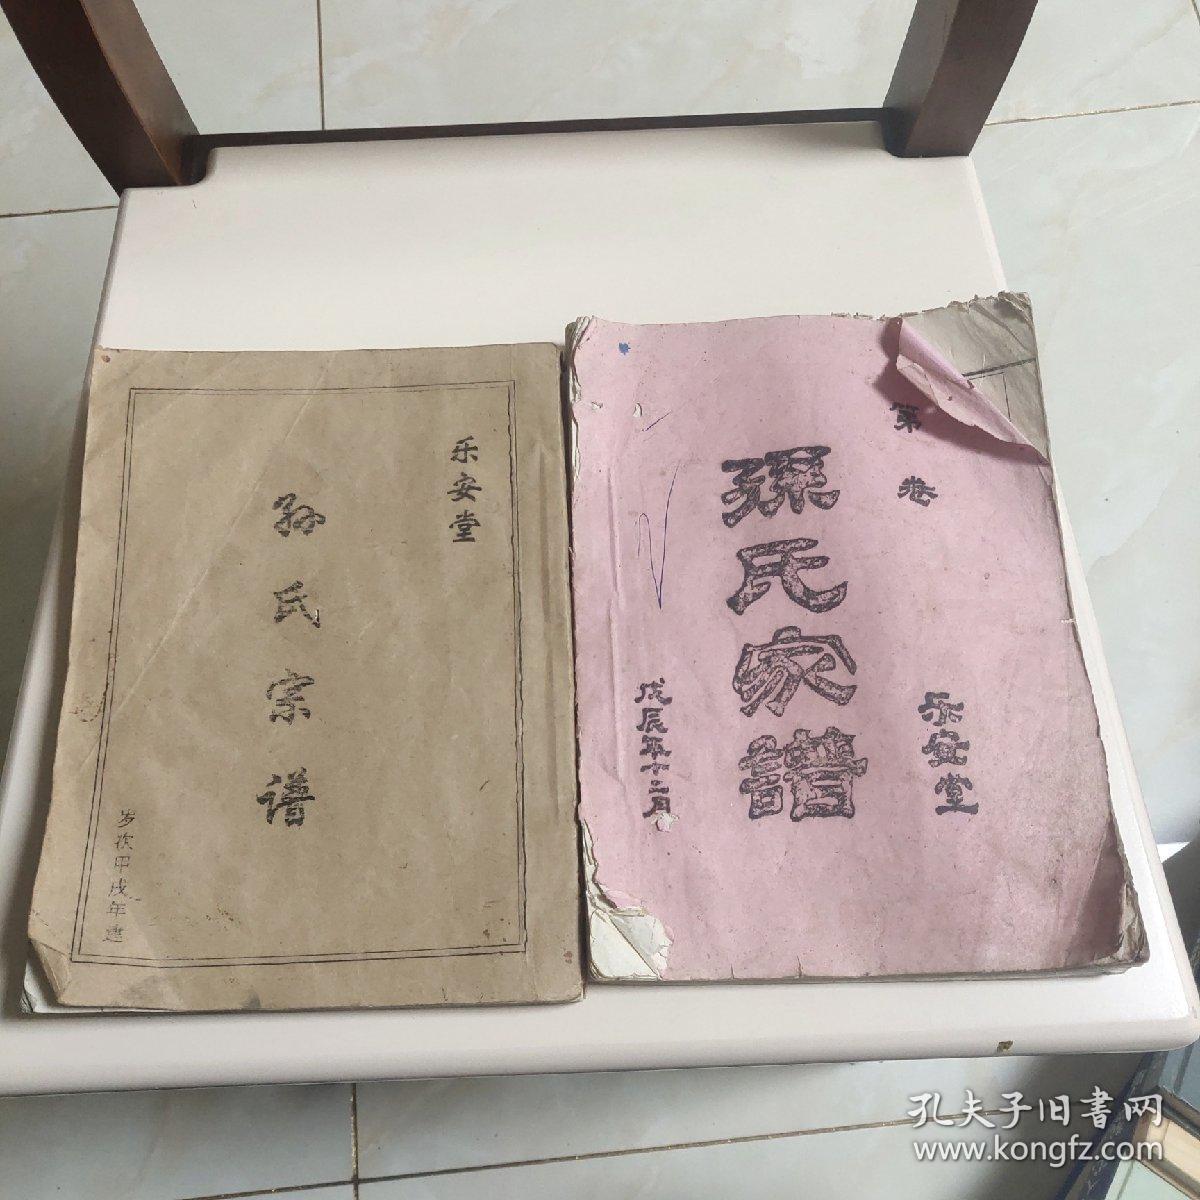 乐安堂
孙氏宗谱
岁次甲戌年建
第 卷
孫氏家譜
乐安堂
戊辰年十二月
孔夫子旧書网
www.kongfz.com